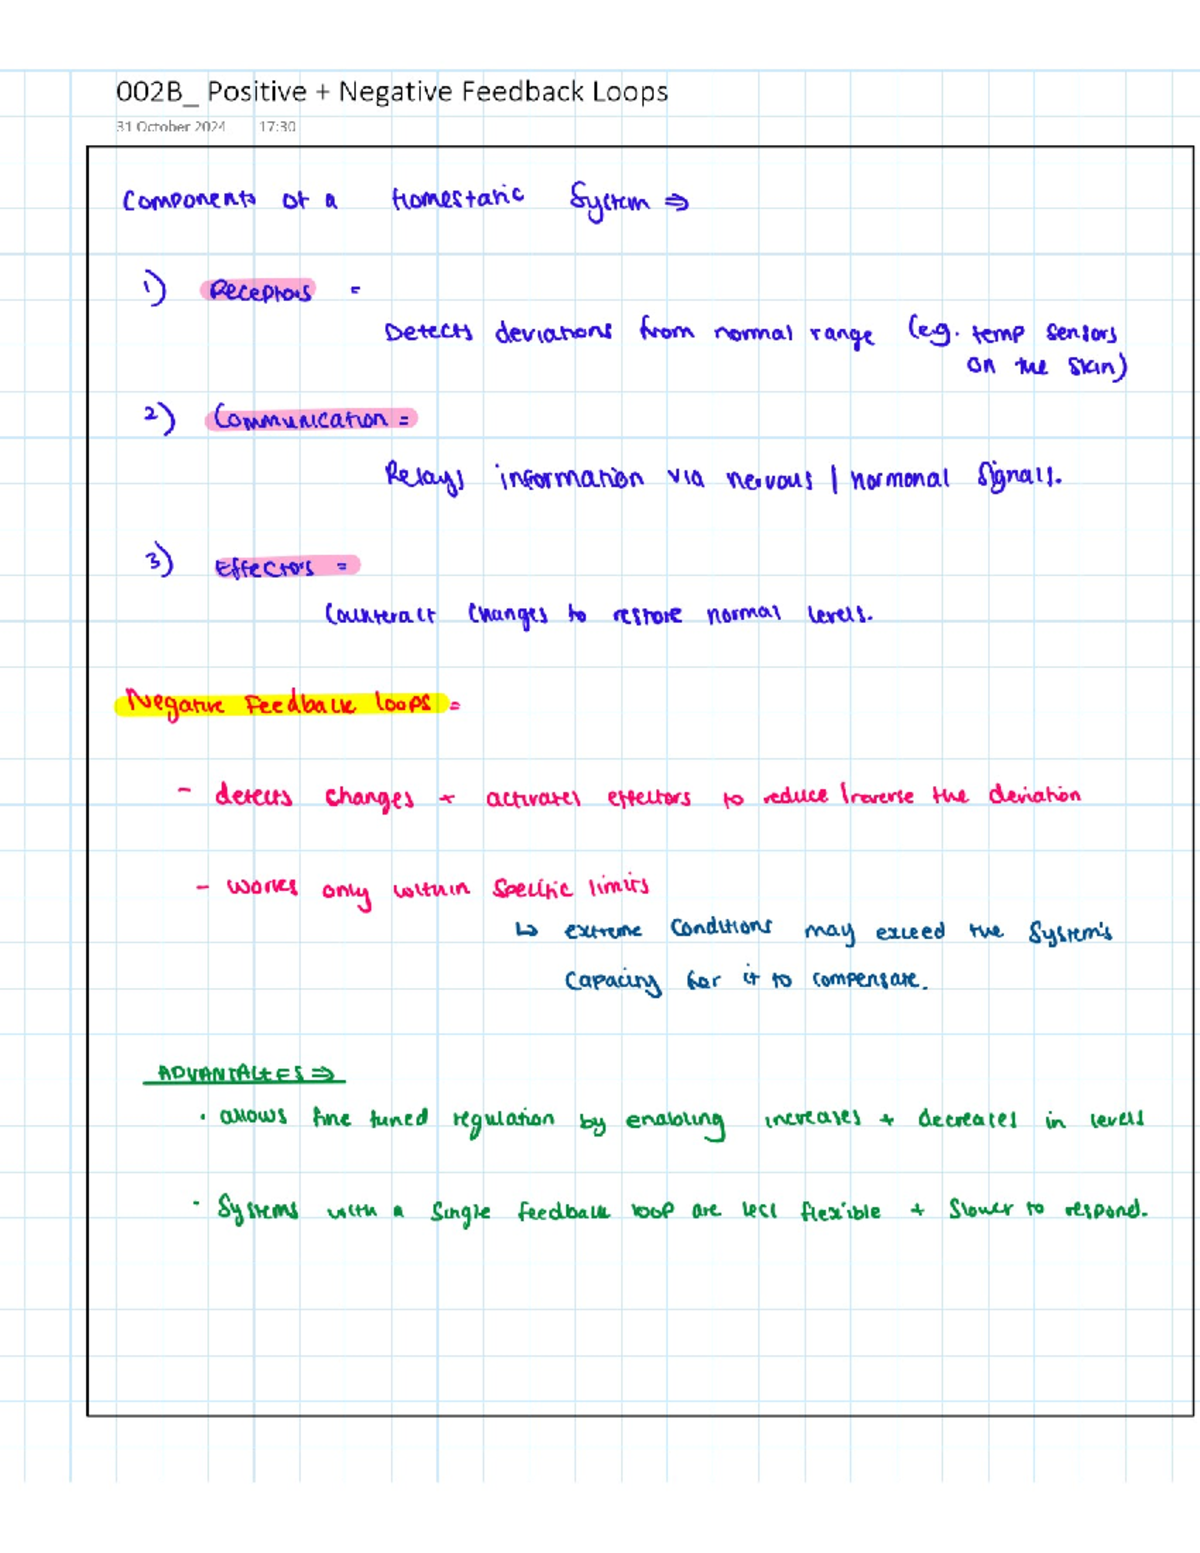 002B_ Positive + Negative Feedback Loops
31 October 2024 17:30
Components of a Homestatic System ⇒
1) Receptors =
Detects deviations from normal range (e.g. temp sensors
on the skin)
2) Communication =
Relays information via nervous / hormonal signals.
3) Effectors =
Counteract changes to restore normal levels.
Negative Feedback loops =
- detects changes + activates effectors to reduce / reverse the deviation
- works only within specific limits
↳ extreme conditions may exceed the system's
capacity for it to compensate.
ADVANTAGES ⇒
• allows fine tuned regulation by enabling increases + decreases in levels
• Systems with a single feedback loop are less flexible + slower to respond.